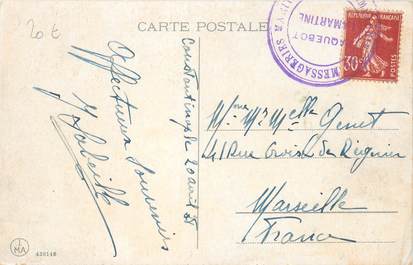 20 €
CARTE POSTALE
MESSAGERIES
PAQUEBOT
LAMARTINE
RÉPUBLIQUE FRANÇAISE
30c
POSTES
Constantinople 20 août
Affectueux souvenirs
Mme Mr Melle Genet
41 Rue Croix de Régnier
Marseille
France
MA